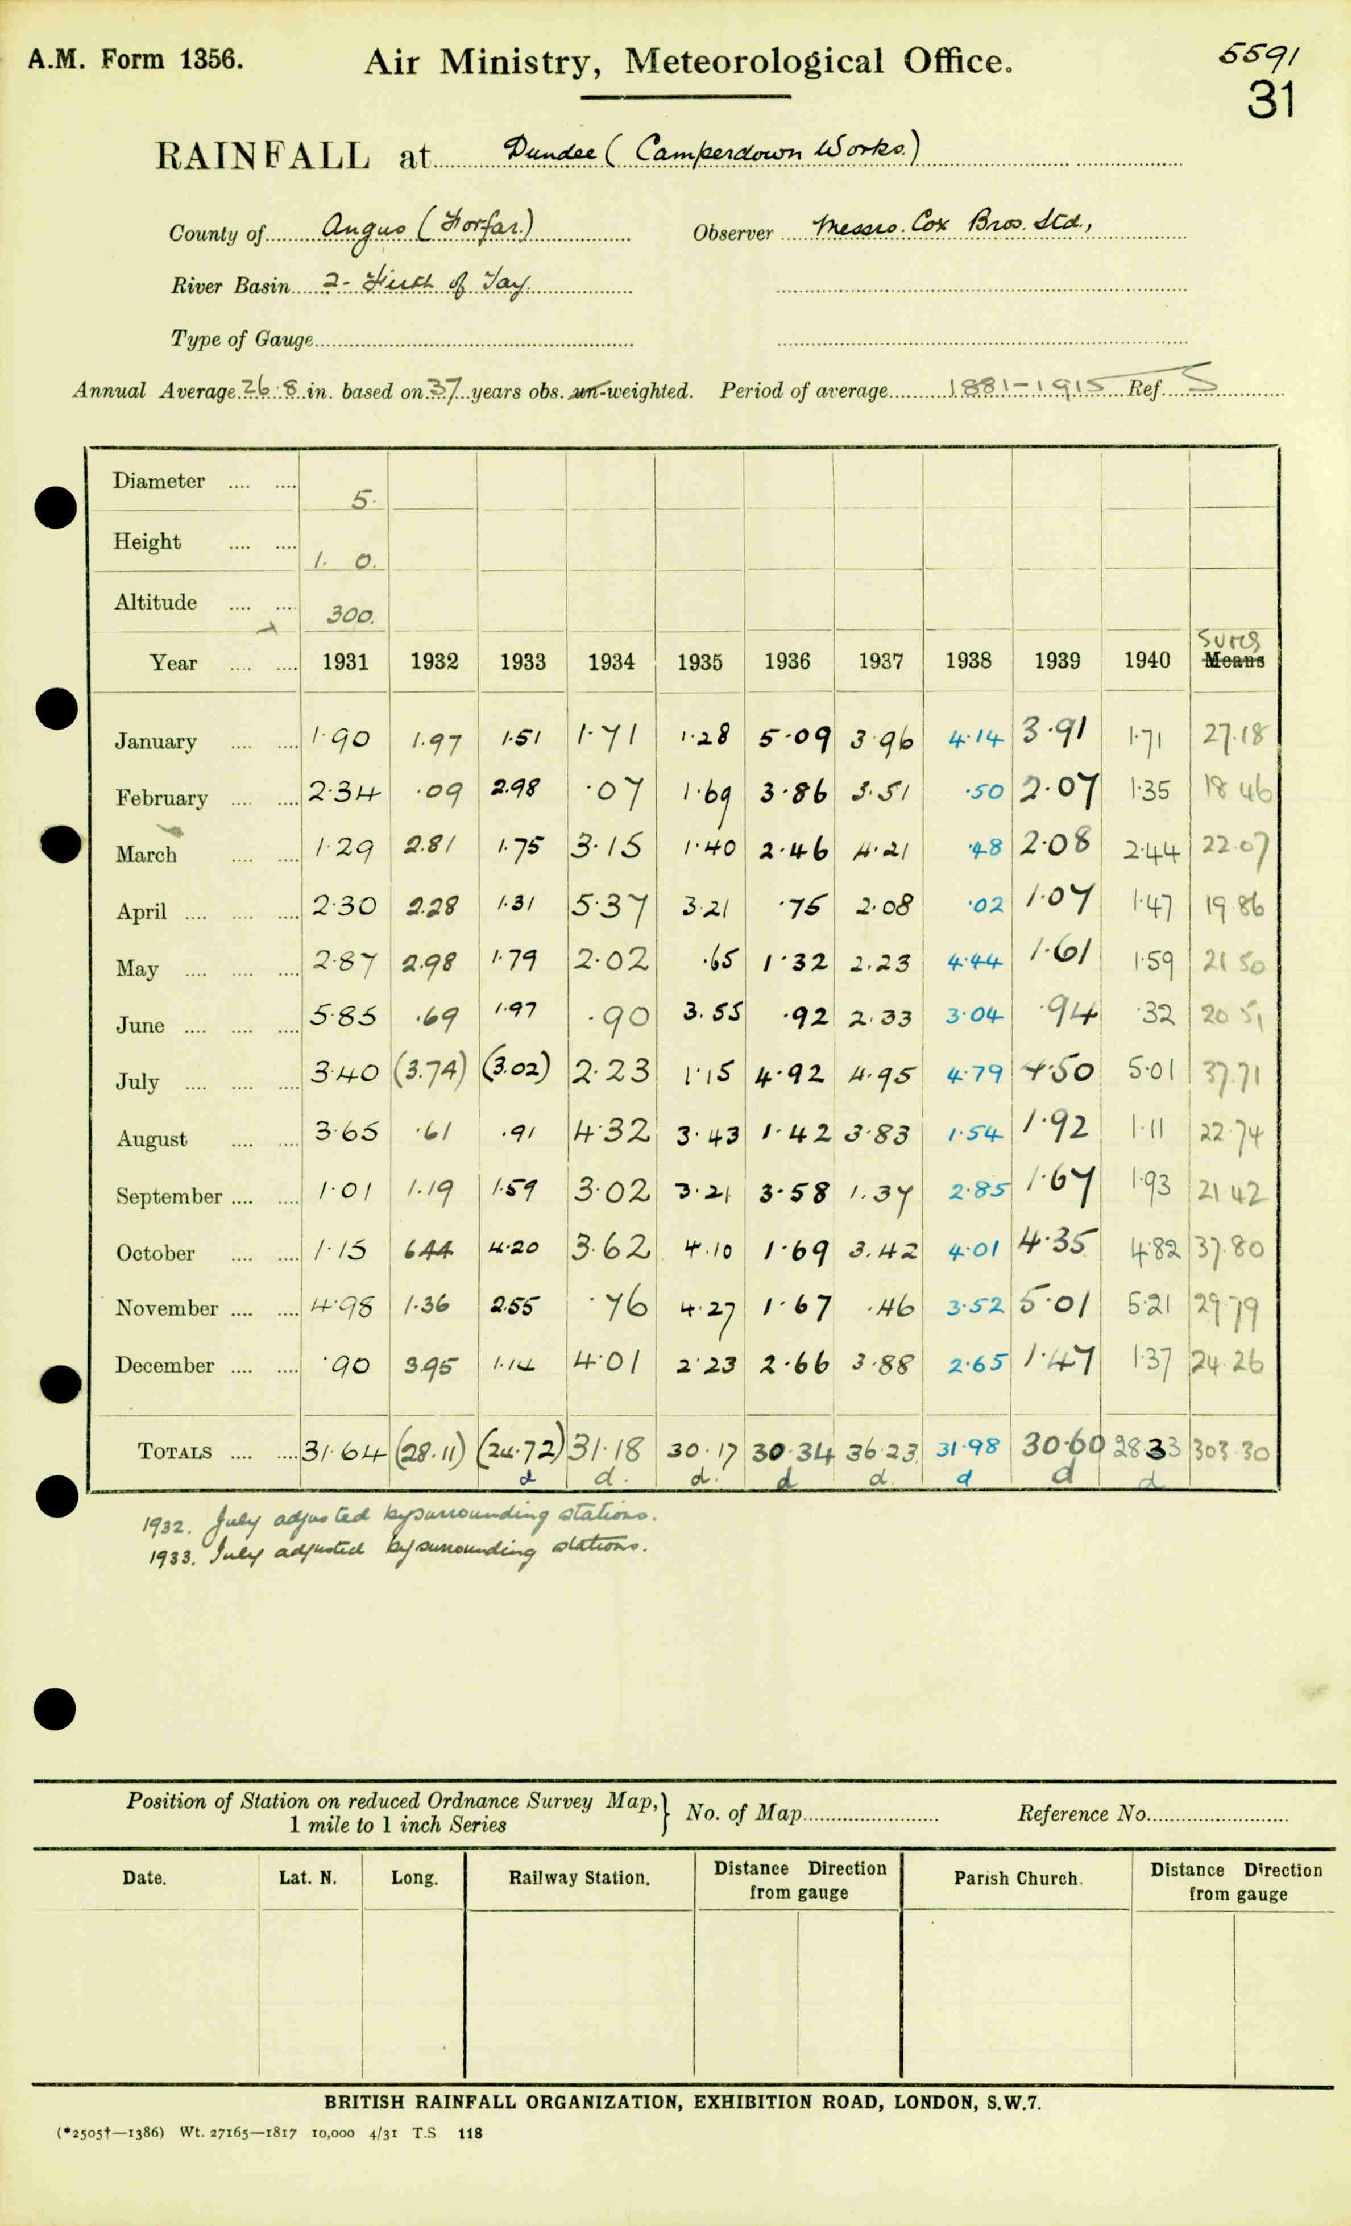 A.M. Form 1356. Air Ministry, Meteorological Office. 5591
31
RAINFALL at Dundee (Camperdown Works.)
County of Angus (Forfar.) Observer Messrs. Cox Bros. Ltd.,
River Basin 2- Firth of Tay.
Type of Gauge
Annual Average 26.8 in. based on 37 years obs. un-weighted. Period of average 1881-1915 Ref. S
Diameter 5.
Height 1. 0.
Altitude 300.
Sums
Year 1931 1932 1933 1934 1935 1936 1937 1938 1939 1940 Means
January 1.90 1.97 1.51 1.71 1.28 5.09 3.96 4.14 3.91 1.71 27.18
February 2.34 .09 2.98 .07 1.69 3.86 3.51 .50 2.07 1.35 18 46
March 1.29 2.81 1.75 3.15 1.40 2.46 4.21 .48 2.08 2.44 22.07
April 2.30 2.28 1.31 5.37 3.21 .75 2.08 .02 1.07 1.47 19 86
May 2.87 2.98 1.79 2.02 .65 1.32 2.23 4.44 1.61 1.59 21 50
June 5.85 .69 1.97 .90 3.55 .92 2.33 3.04 .94 .32 20 51
July 3.40 (3.74) (3.02) 2.23 1.15 4.92 4.95 4.79 4.50 5.01 37.71
August 3.65 .61 .91 4.32 3.43 1.42 3.83 1.54 1.92 1.11 22.74
September 1.01 1.19 1.59 3.02 3.21 3.58 1.37 2.85 1.67 1.93 21 42
October 1.15 6.44 4.20 3.62 4.10 1.69 3.42 4.01 4.35 4.82 37.80
November 4.98 1.36 2.55 .76 4.27 1.67 .46 3.52 5.01 5.21 29.79
December .90 3.95 1.14 4.01 2.23 2.66 3.88 2.65 1.47 1.37 24.26
TOTALS 31.64 (28.11) (24.72) 31.18 30.17 30.34 36.23 31.98 30.60 28.33 303.30
d d. d. d d. d d d
1932. July adjusted by surrounding stations.
1933. July adjusted by surrounding stations.
Position of Station on reduced Ordnance Survey Map, } No. of Map Reference No.
1 mile to 1 inch Series
Date. Lat. N. Long. Railway Station. Distance Direction from gauge Parish Church. Distance Direction from gauge
BRITISH RAINFALL ORGANIZATION, EXHIBITION ROAD, LONDON, S.W.7.
(*2505†—1386) Wt. 27165—1817 10,000 4/31 T.S 118